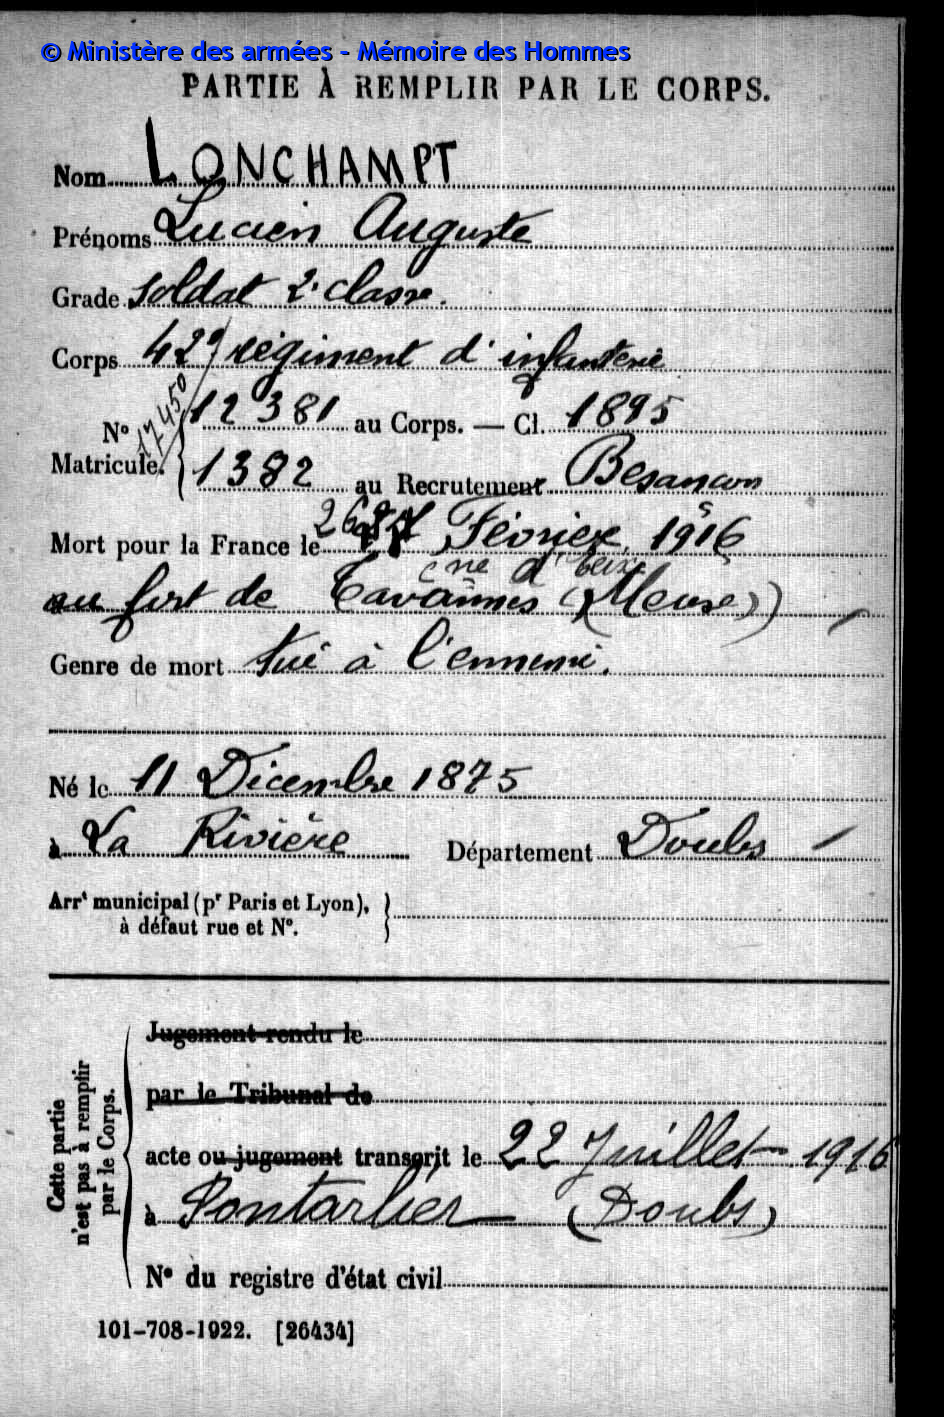 © Ministère des armées - Mémoire des Hommes
PARTIE À REMPLIR PAR LE CORPS.
Nom LONCHAMPT
Prénoms Lucien Auguste
Grade soldat 2e classe.
Corps 42e régiment d'infanterie
17450
N° 12 381 au Corps. — Cl. 1895
Matricule. 1382 au Recrutement Besançon
Mort pour la France le 26 Février 1916
cne d'Eix
au fort de Tavannes (Meuse)
Genre de mort tué à l'ennemi.
Né le 11 Décembre 1875
à La Rivière Département Doubs
Arrt municipal (pr Paris et Lyon),
à défaut rue et N°.
Cette partie
n'est pas à remplir
par le Corps.
Jugement rendu le
par le Tribunal de
acte ou jugement transcrit le 22 Juillet 1916
à Pontarlier (Doubs)
N° du registre d'état civil
101-708-1922. [26434]